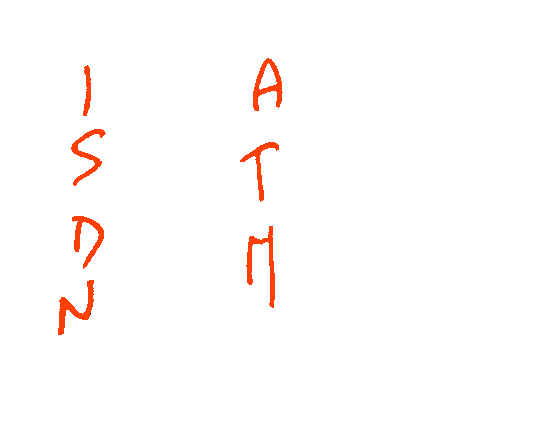 ISDN
ATM